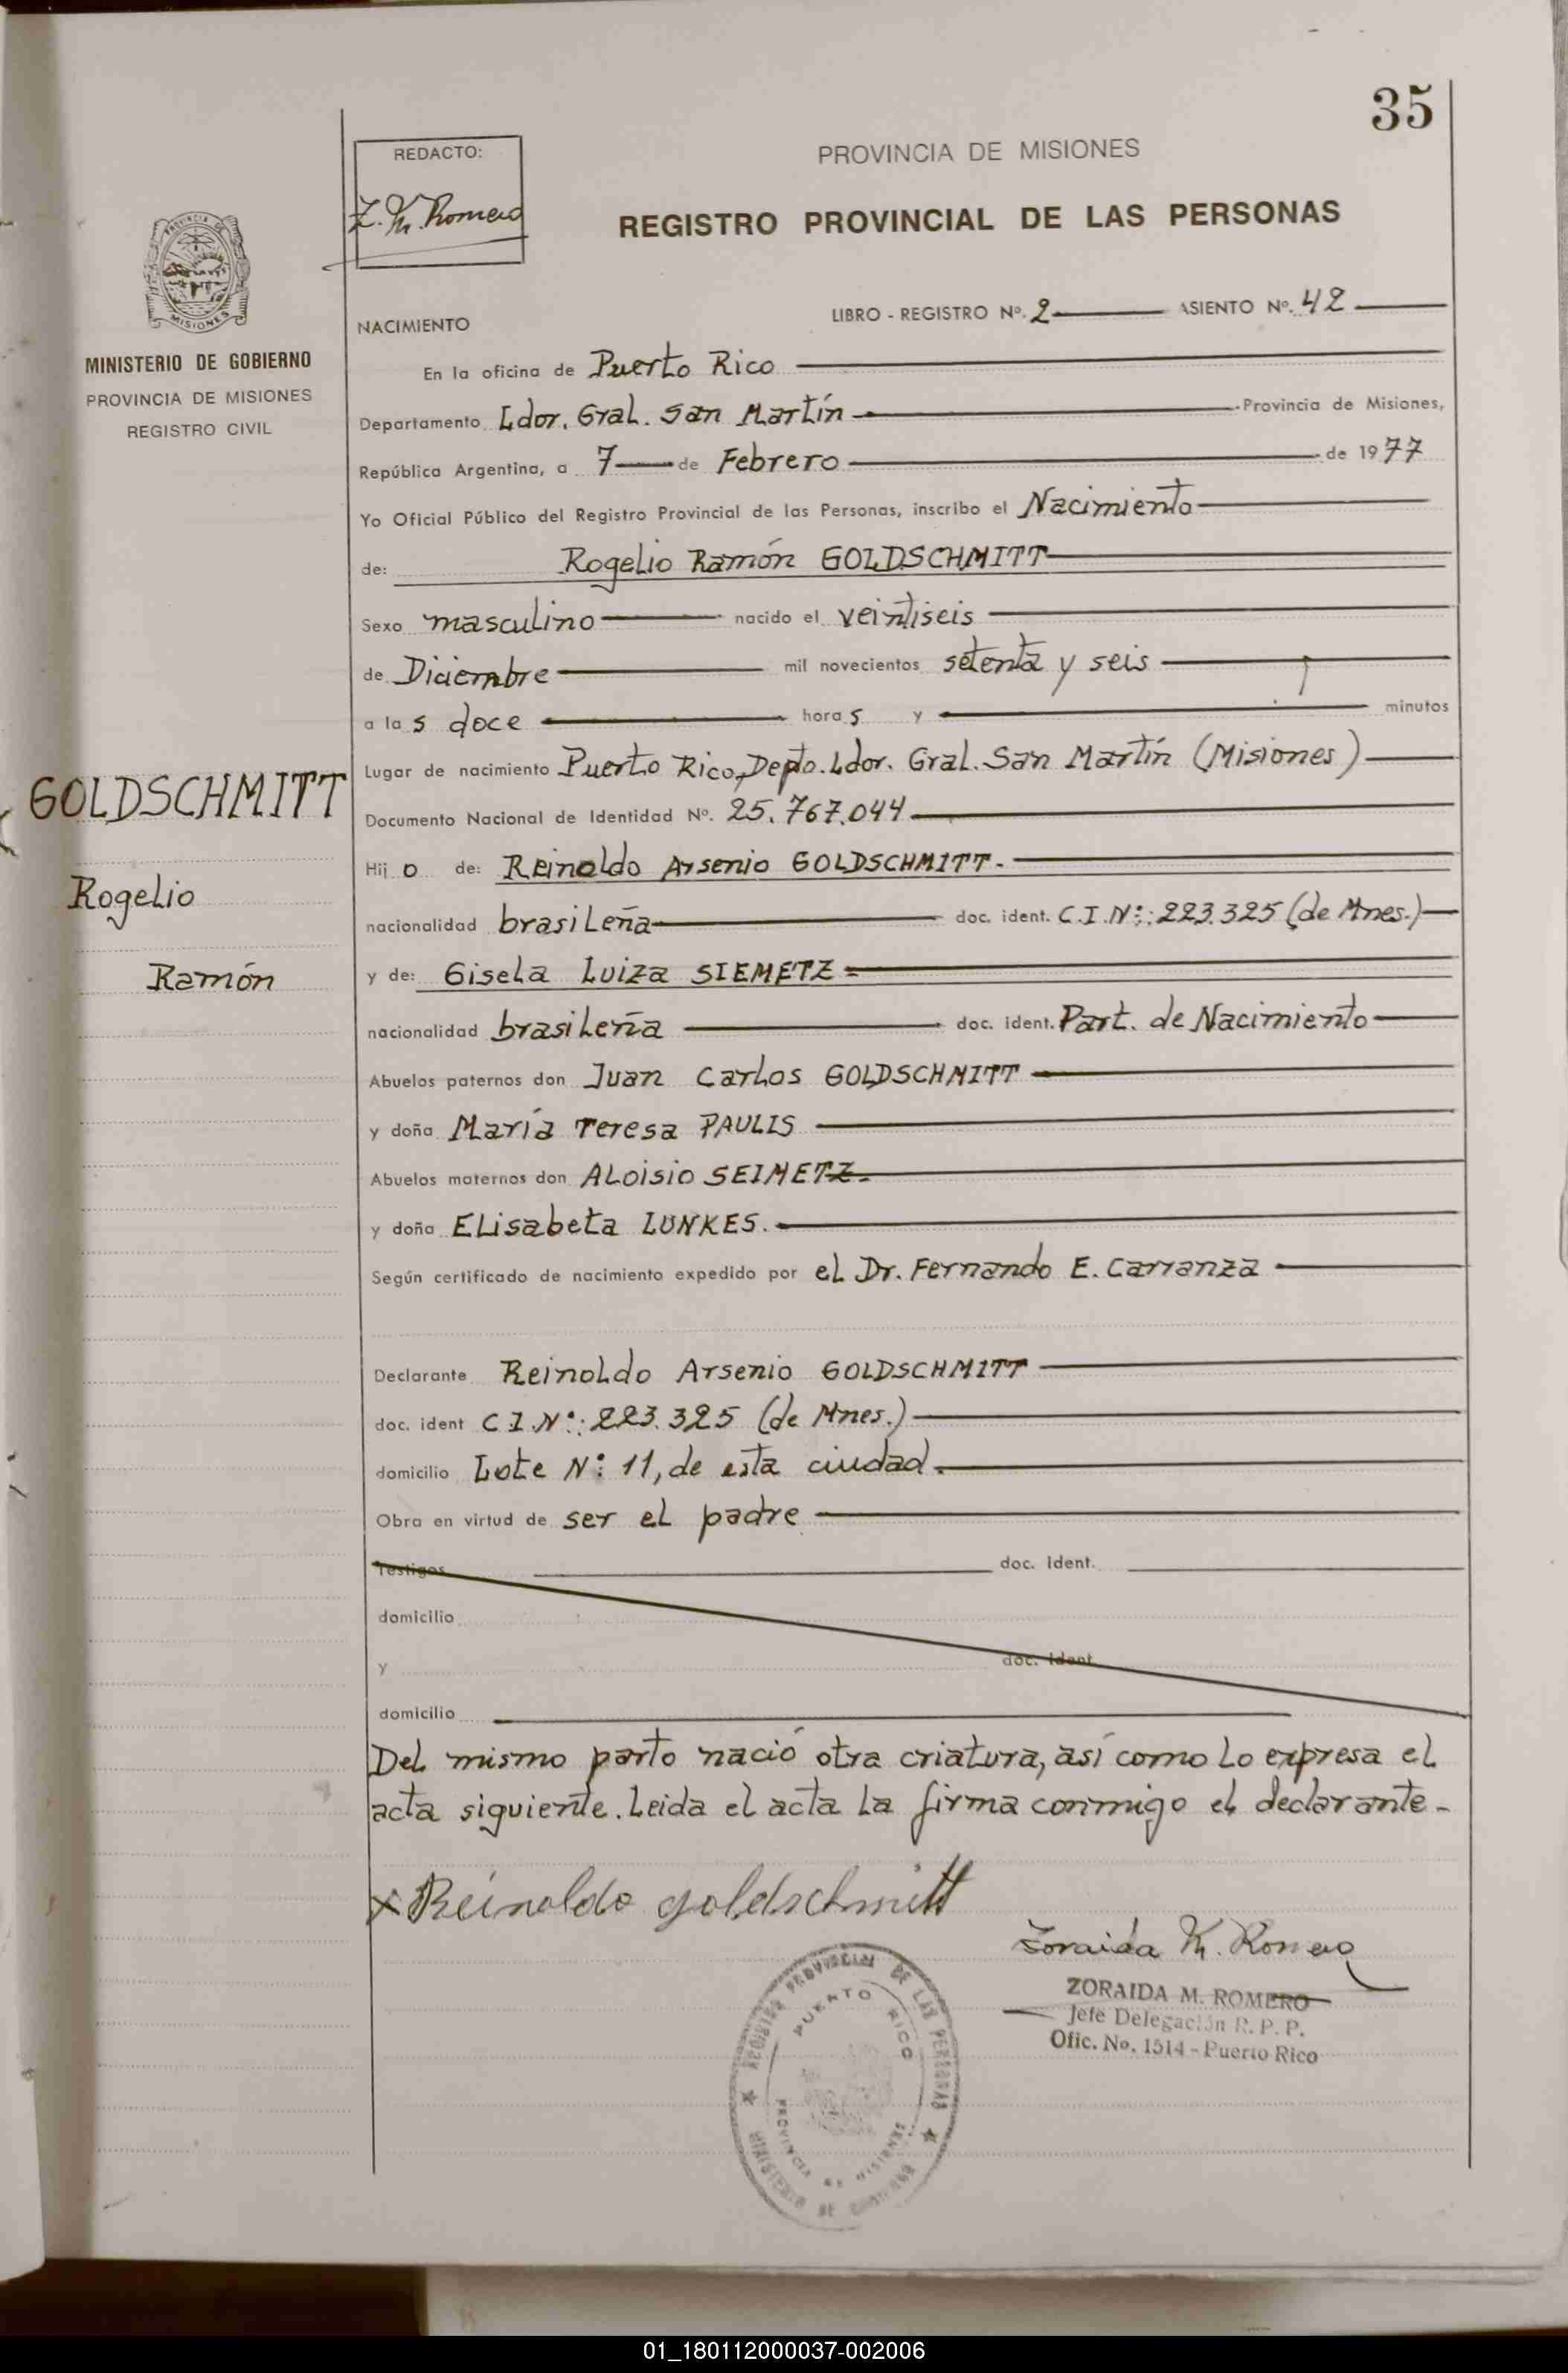 35
REDACTO:
Z. M. Romero
PROVINCIA DE MISIONES
REGISTRO PROVINCIAL DE LAS PERSONAS
PROVINCIA DE
MISIONES
MINISTERIO DE GOBIERNO
PROVINCIA DE MISIONES
REGISTRO CIVIL
GOLDSCHMITT
Rogelio
Ramón
LIBRO - REGISTRO Nº. 2 ASIENTO Nº. 42
NACIMIENTO
En la oficina de Puerto Rico
Departamento Ldor. Gral. San Martín Provincia de Misiones,
República Argentina, a 7 de Febrero de 1977
Yo Oficial Público del Registro Provincial de las Personas, inscribo el Nacimiento
de: Rogelio Ramón GOLDSCHMITT
Sexo masculino nacido el veintiseis
de Diciembre mil novecientos setenta y seis
a las doce horas y minutos
Lugar de nacimiento Puerto Rico, Depto. Ldor. Gral. San Martín (Misiones)
Documento Nacional de Identidad Nº. 25.767.044
Hijo de: Reinoldo Arsenio GOLDSCHMITT.
nacionalidad brasileña doc. ident. C.I.Nº: 223.325 (de Mnes.)
y de: Gisela Luiza SIEMETZ
nacionalidad brasileña doc. ident. Part. de Nacimiento
Abuelos paternos don Juan Carlos GOLDSCHMITT
y doña María Teresa PAULIS
Abuelos maternos don Aloisio SEIMETZ.
y doña Elisabeta LUNKES.
Según certificado de nacimiento expedido por el Dr. Fernando E. Carranza
Declarante Reinoldo Arsenio GOLDSCHMITT
doc. ident C I.Nº: 223.325 (de Mnes.)
domicilio Lote Nº 11, de esta ciudad.
Obra en virtud de ser el padre
Testigos doc. Ident.
domicilio
y doc. Ident.
domicilio
Del mismo parto nació otra criatura, así como lo expresa el
acta siguiente. Leida el acta la firma conmigo el declarante-
x Reinoldo goldschmitt
Zoraida M. Romero
ZORAIDA M. ROMERO
Jefe Delegación R. P. P.
Ofic. No. 1514 - Puerto Rico
REGISTRO PROVINCIAL DE LAS PERSONAS
PUERTO RICO
PROVINCIA DE MISIONES
MINISTERIO DE GOBIERNO
01_180112000037-002006